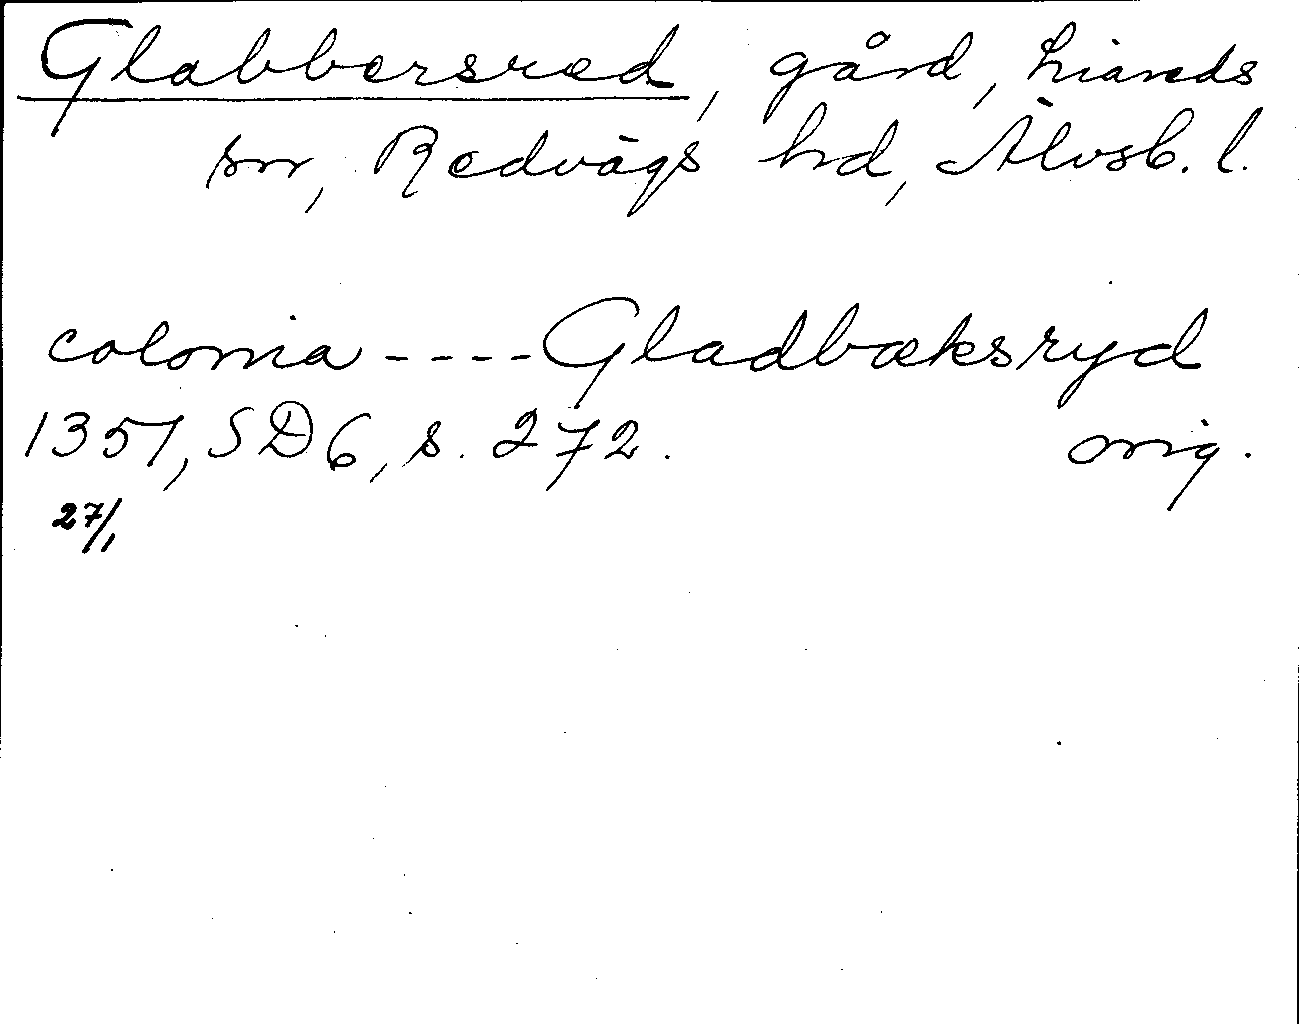 Glabbersred, gård, Liareds
sn, Redvägs hd, Älvsb. l.
colonia ---- Gladbæksryd
1351, SD 6, s. 272. orig.
27/1